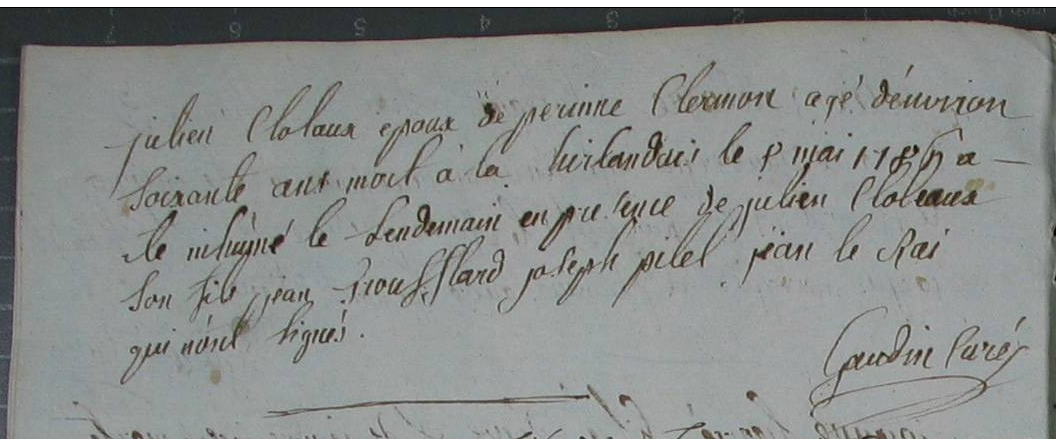 julien Clolaux epoux de perinne Clermont agé dénviron
soixante ans mort à la hirlandais le 8 mai 1786 a
été inhûmé le Lendemain en présence de julien Cloleaux
son fils jean joseph pitel jean le Rai
qui n'ont signés.
Gaudin Curé